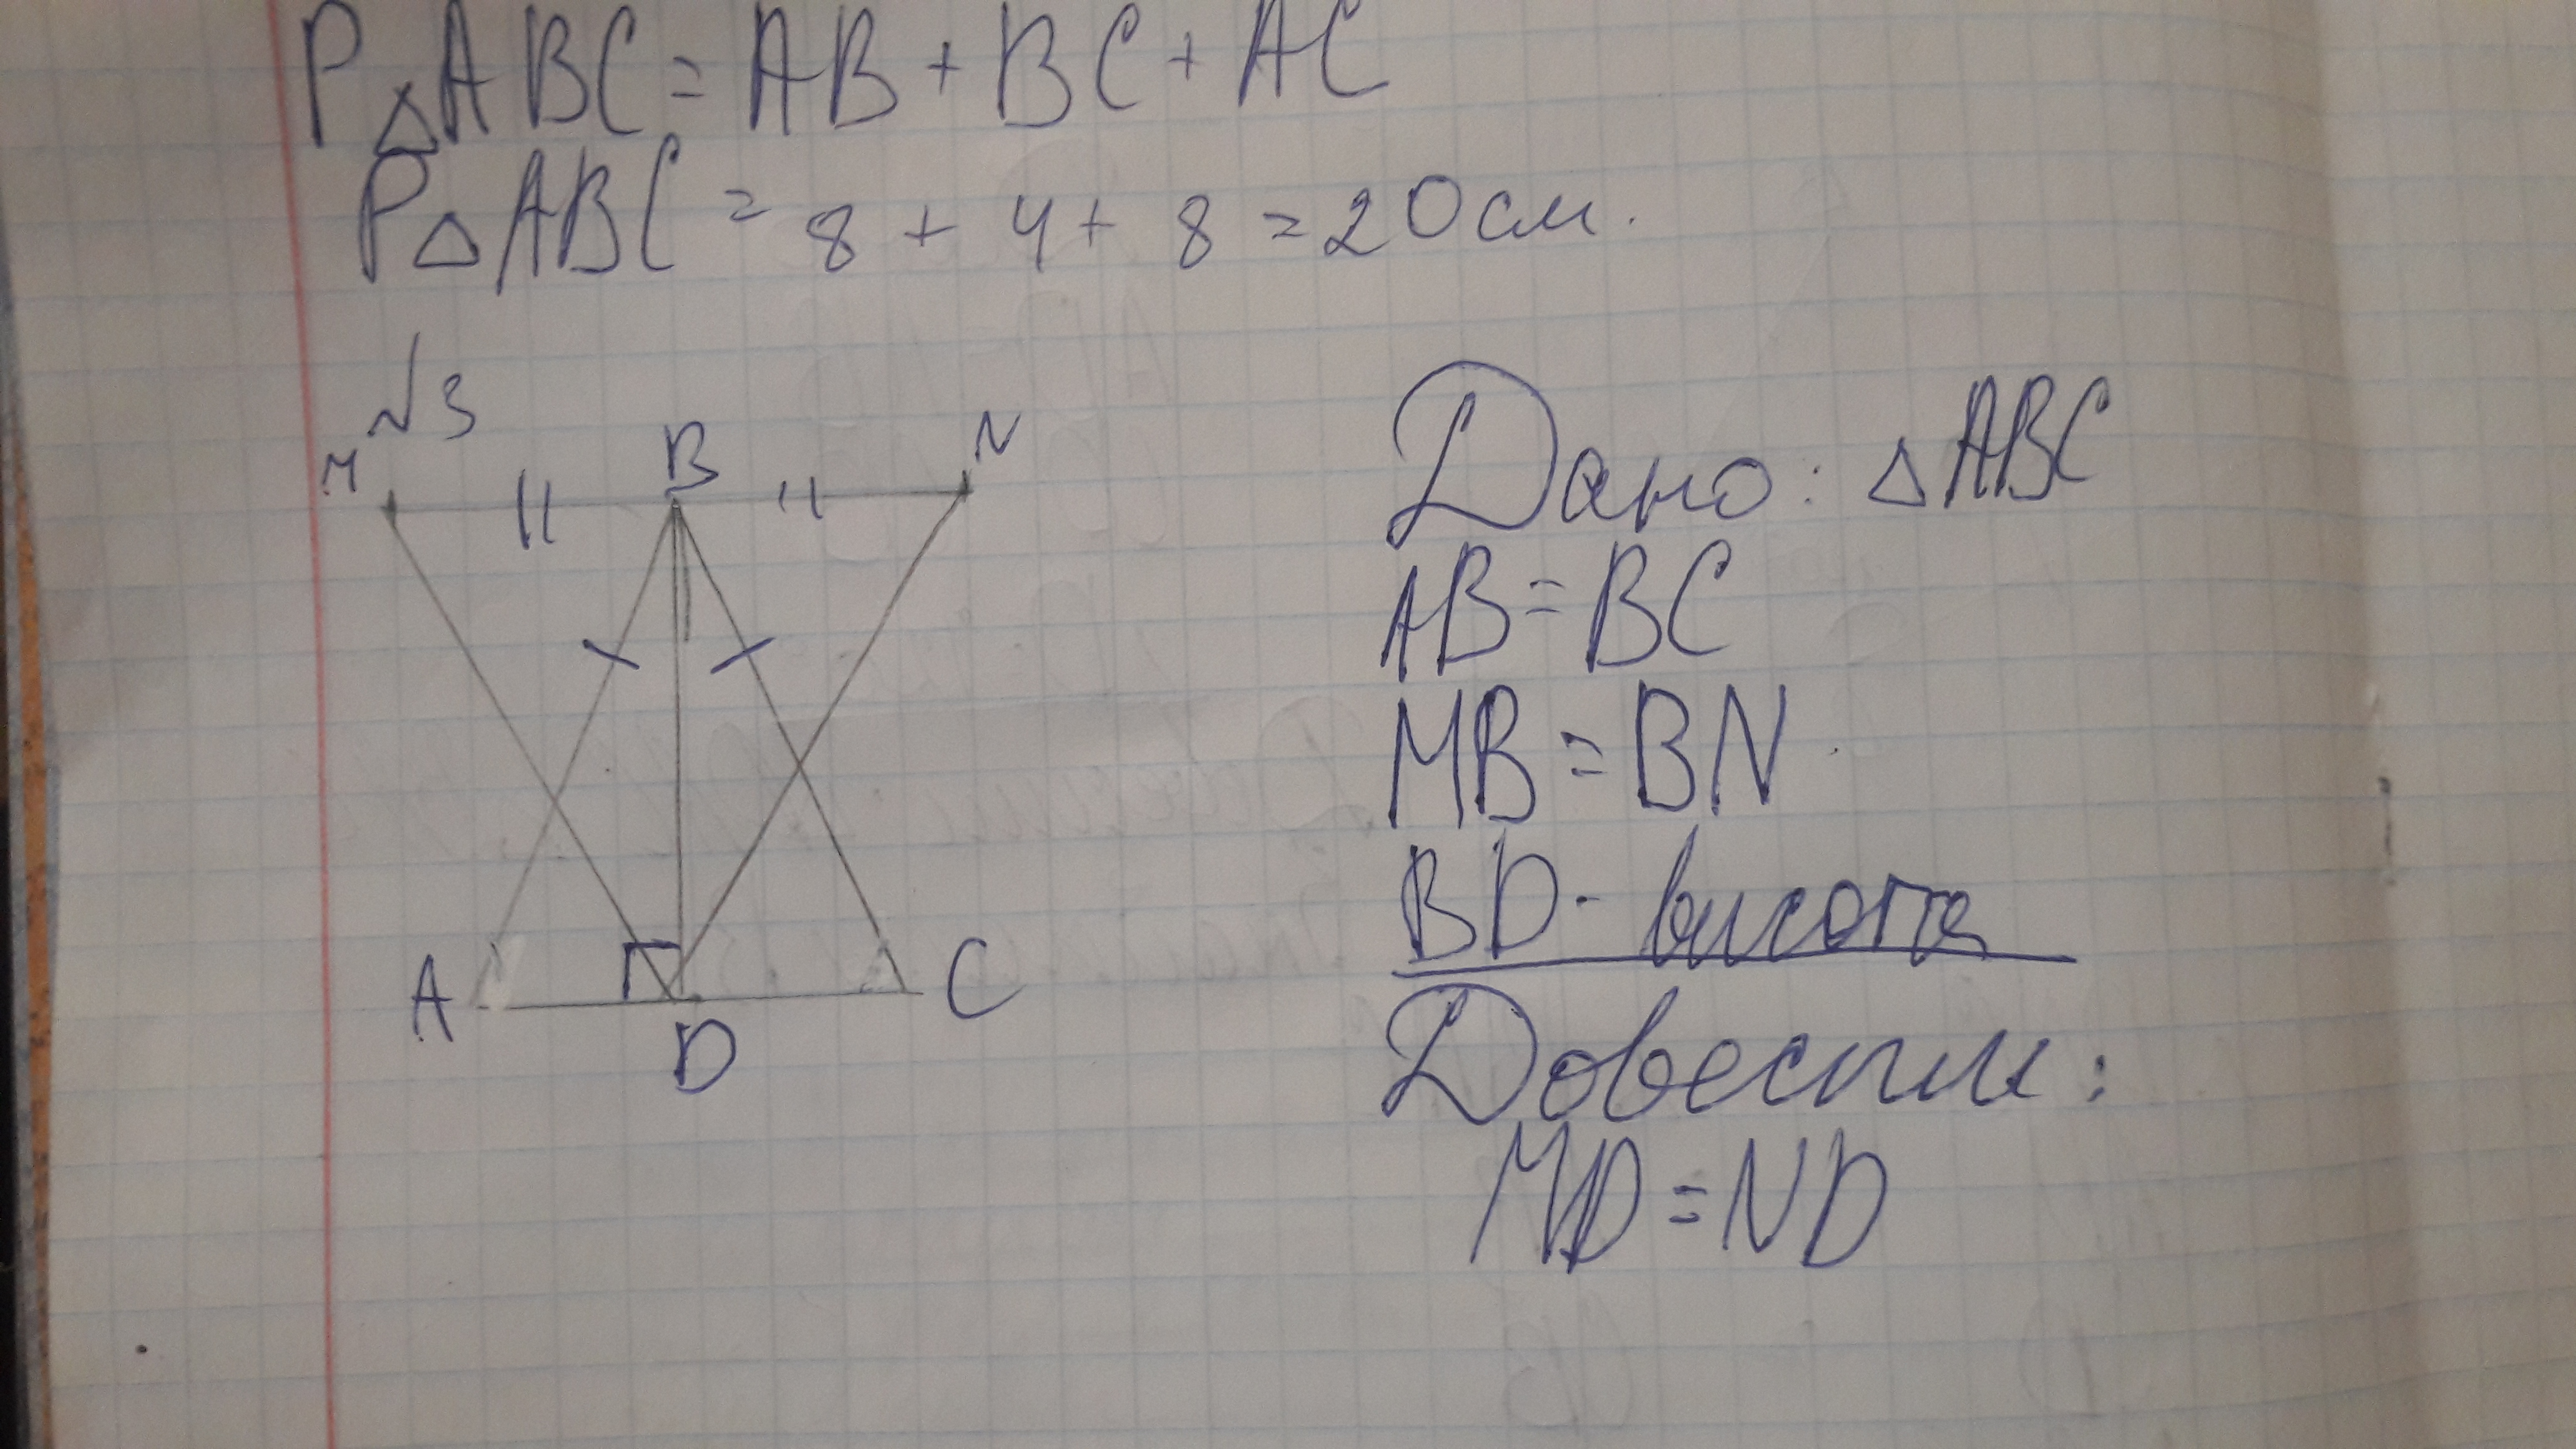 P△ABC = AB + BC + AC
P△ABC = 8 + 4 + 8 = 20 см.
№3
M B N
A D C
Дано: △ABC
AB = BC
MB = BN
BD - висота
Довести:
MD = ND